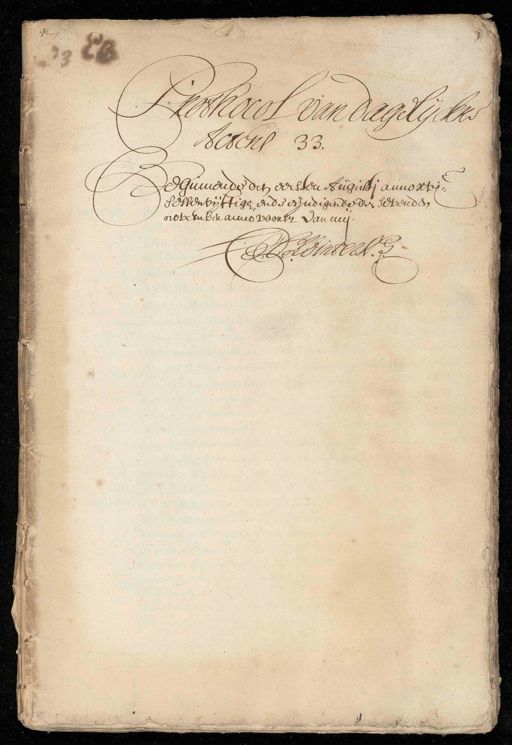 33
Prothocol van dagelijckse
Acten 33.
Beginnende den eersten Augustij anno xvjc
sessenvijftigh, ende eijndigende den sevenden
november anno voorsz. van mij.